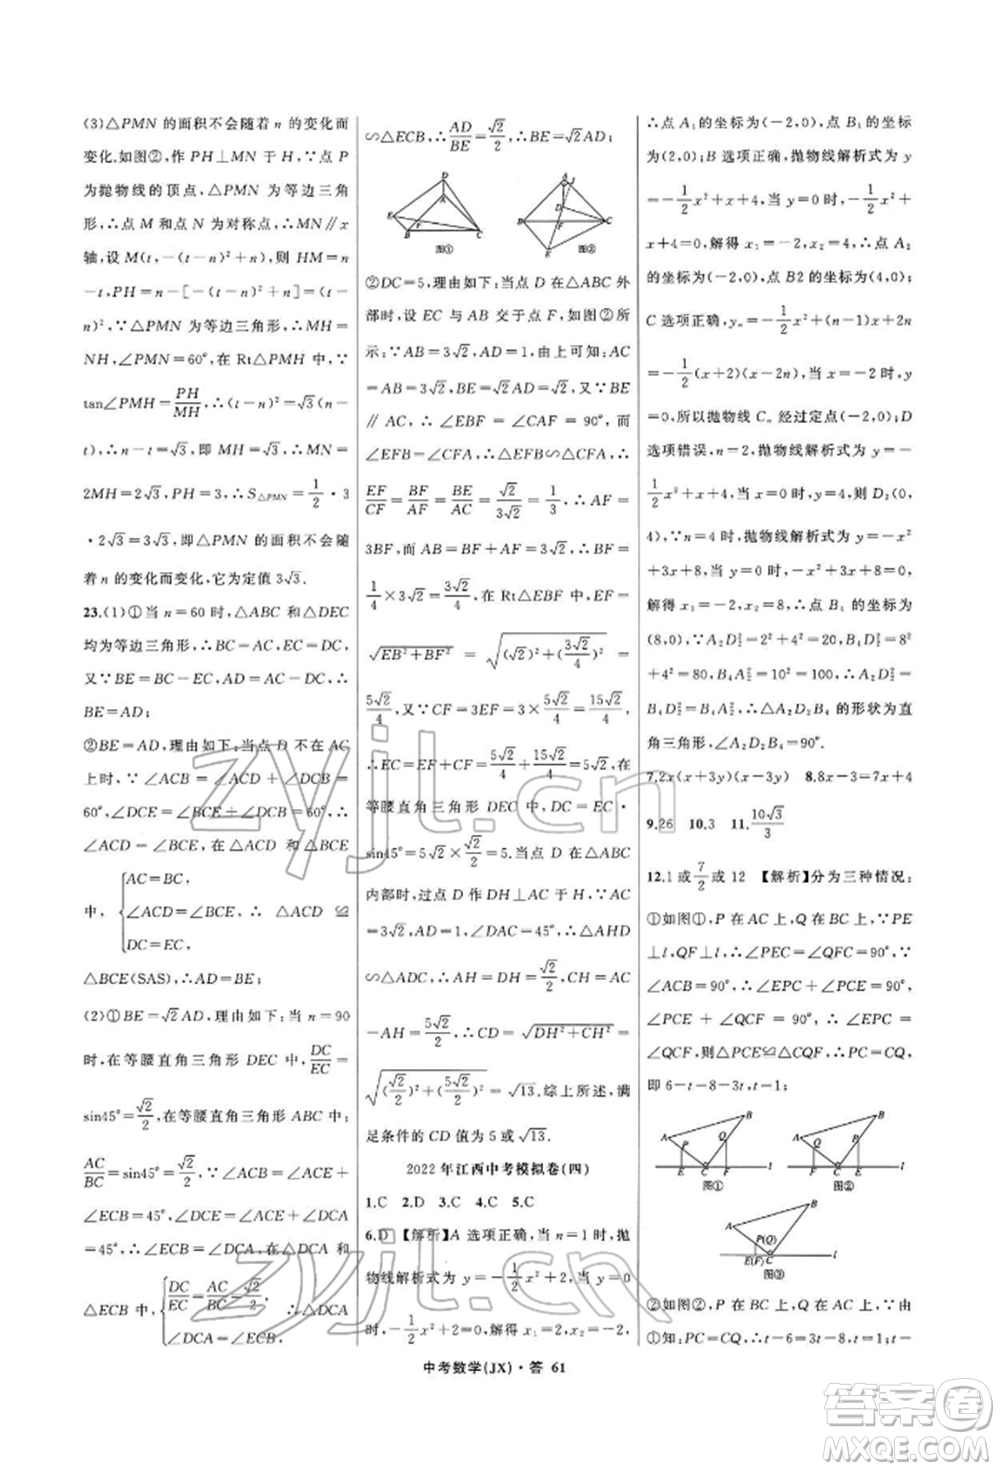 (3)△PMN 的面积不会随着 n 的变化而
变化.如图②,作 PH⊥MN 于 H,∵点 P
为抛物线的顶点,△PMN 为等边三角
形,∴点 M 和点 N 为对称点,∴MN∥x
轴,设 M(t,-(t-n)²+n),则 HM=n
-t,PH=n-[-(t-n)²+n]=(t-
n)²,∵△PMN 为等边三角形,∴MH=
NH,∠PMN=60°,在 Rt△PMH 中,∵
tan∠PMH=PH/MH,∴(t-n)²=√3(n-
t),∴n-t=√3,即 MH=√3,∴MN=
2MH=2√3,PH=3,∴S△PMN=1/2·3
·2√3=3√3,即△PMN 的面积不会随
着 n 的变化而变化,它为定值 3√3.
23.(1)①当 n=60 时,△ABC 和△DEC
均为等边三角形,∴BC=AC,EC=DC,
又∵BE=BC-EC,AD=AC-DC,∴
BE=AD;
②BE=AD,理由如下:当点 D 不在 AC
上时,∵∠ACB=∠ACD+∠DCB=
60°,∠DCE=∠BCE+∠DCB=60°,∴
∠ACD=∠BCE,在△ACD 和△BCE
中,{AC=BC, ∠ACD=∠BCE, DC=EC, ∴△ACD≌
△BCE(SAS),∴AD=BE;
(2)①BE=√2AD,理由如下:当 n=90
时,在等腰直角三角形 DEC 中,DC/EC=
sin45°=√2/2,在等腰直角三角形 ABC 中,
AC/BC=sin45°=√2/2,∵∠ACB=∠ACE
+∠ECB=45°,∠DCE=∠ACE+
∠DCA=45°,∴∠ECB=∠DCA,在△DCA 和
△ECB 中,{DC/EC=AC/BC=√2/2, ∠DCA=∠ECB, ∴△DCA
∽△ECB,∴AD/BE=√2/2,∴BE=√2AD;
D A E F B C 图①
A J D B C F E 图②
②DC=5,理由如下:当点 D 在△ABC 外
部时,设 EC 与 AB 交于点 F,如图②所
示:∵AB=3√2,AD=1,由上可知:AC
=AB=3√2,BE=√2AD=√2,又∵BE
∥AC,∴∠EBF=∠CAF=90°,而
∠EFB=∠CFA,∴△EFB∽△CFA,∴
EF/CF=BF/AF=BE/AC=√2/3√2=1/3,∴AF=
3BF,而 AB=BF+AF=3√2,∴BF=
1/4×3√2=3√2/4,在 Rt△EBF 中,EF=
√(EB²+BF²)=√((√2)²+(3√2/4)²)=
5√2/4,又∵CF=3EF=3×5√2/4=15√2/4,
∴EC=EF+CF=5√2/4+15√2/4=5√2,在
等腰直角三角形 DEC 中,DC=EC·
sin45°=5√2×√2/2=5.当点 D 在△ABC
内部时,过点 D 作 DH⊥AC 于 H,∵AC
=3√2,AD=1,∠DAC=45°,∴△AHD
∽△ADC,∴AH=DH=√2/2,CH=AC
-AH=5√2/2,∴CD=√(DH²+CH²)=
√((√2/2)²+(5√2/2)²)=√13.综上所述,满
足条件的 CD 值为 5 或√13.
2022年江西中考模拟卷(四)
1.C 2.D 3.C 4.C 5.C
6.D 【解析】A 选项正确,当 n=1 时,抛
物线解析式为 y=-1/2x²+2,当 y=0
时,-1/2x²+2=0,解得 x₁=2,x₂=-2,
∴点 A₁ 的坐标为(-2,0),点 B₁ 的坐标为
(2,0);B 选项正确,抛物线解析式为 y
=-1/2x²+x+4,当 y=0 时,-1/2x²
+x+4=0,解得 x₁=-2,x₂=4,∴点 A₂
的坐标为(-2,0),点 B2 的坐标为(4,0);
C 选项正确,yₙ=-1/2x²+(n-1)x+2n
=-1/2(x+2)(x-2n),当 x=-2 时,y
=0,所以抛物线 Cₙ 经过定点(-2,0);D
选项错误,n=2 时,抛物线解析式为 y=-
1/2x²+x+4,当 x=0 时,y=4,则 D₂(0,
4),∵n=4 时,抛物线解析式为 y=-1/2x²
+3x+8,当 y=0 时,-1/2x²+3x+8=0,
解得 x₁=-2,x₂=8,∴点 B₄ 的坐标为
(8,0),∴A₂D₂²=2²+4²=20,B₄A₂²=8²
+4²=80,B₄A₂²=(8+2)²=100,∴
B₄D₂²+A₂D₂²=B₄A₂²,∴△A₂D₂B₄ 的形状为直
角三角形,∠A₂D₂B₄=90°.
7.2x(x+3y)(x-3y) 8.8x-3=7x+4
9.26 10.3 11.10√3/3
12.1 或 7/2 或 12 【解析】分为三种情况:
①如图①,P 在 AC 上,Q 在 BC 上,∵PE
⊥l,QF⊥l,∴∠PEC=∠QFC=90°,∵
∠ACB=90°,∴∠EPC+∠PCE=90°,
∠PCE+∠QCF=90°,∴∠EPC=
∠QCF,则△PCE≌△CQF,∴PC=CQ,
即 6-t=8-3t,t=1;
A P B Q E C F l 图①
A Q B P F C E l 图②
A B P(Q) E(F) C l 图③
②如图②,P 在 BC 上,Q 在 AC 上,∵由
①知:PC=CQ,∴t-6=3t-8,∴t=1,t
中考数学(JX)·答 61
zyjl.cn
zyjl.cn
答案圈
MXQE.COM